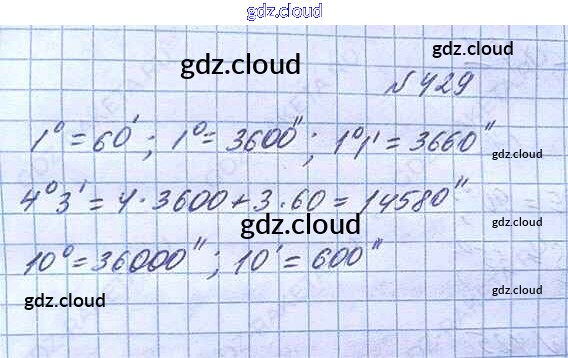 gdz.cloud
gdz.cloud
gdz.cloud
№ 429
1° = 60'; 1° = 3600"; 1°1' = 3660"
gdz.cloud
4°3' = 4·3600+3·60 = 14580"
gdz.cloud
10° = 36000"; 10' = 600"
gdz.cloud
gdz.cloud